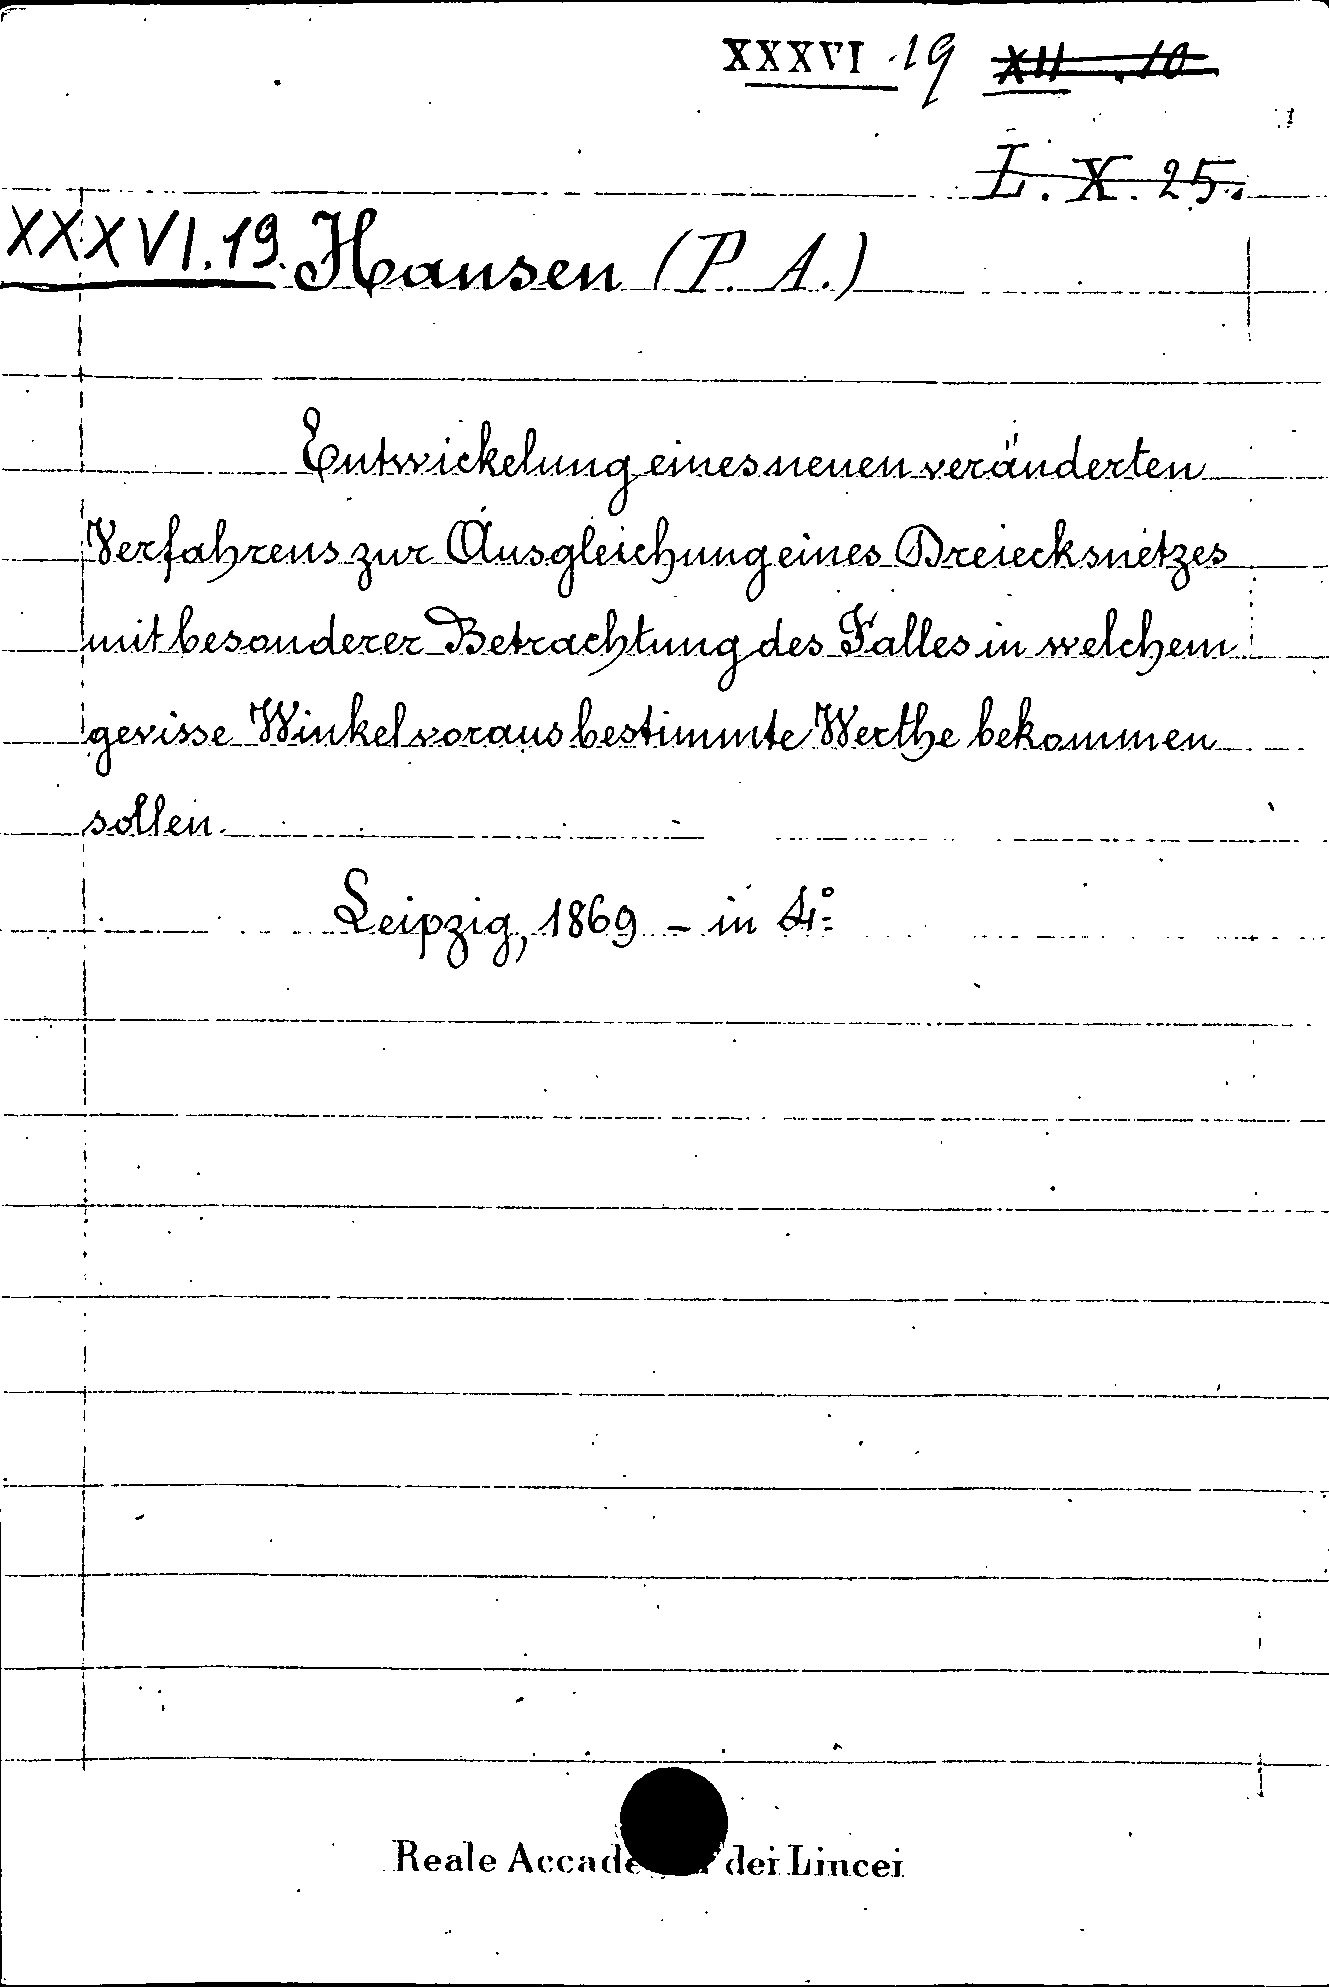 XXXVI .19 XII .10
L. X. 25.
XXXVI.19. Hansen (P. A.)
Entwickelung eines neuen veränderten
Verfahrens zur Ausgleichung eines Dreiecksnetzes
mit besonderer Betrachtung des Falles in welchem
gevisse Winkel voraus bestimmte Werthe bekommen
sollen.
Leipzig, 1869 - in 4°
Reale dei Lincei